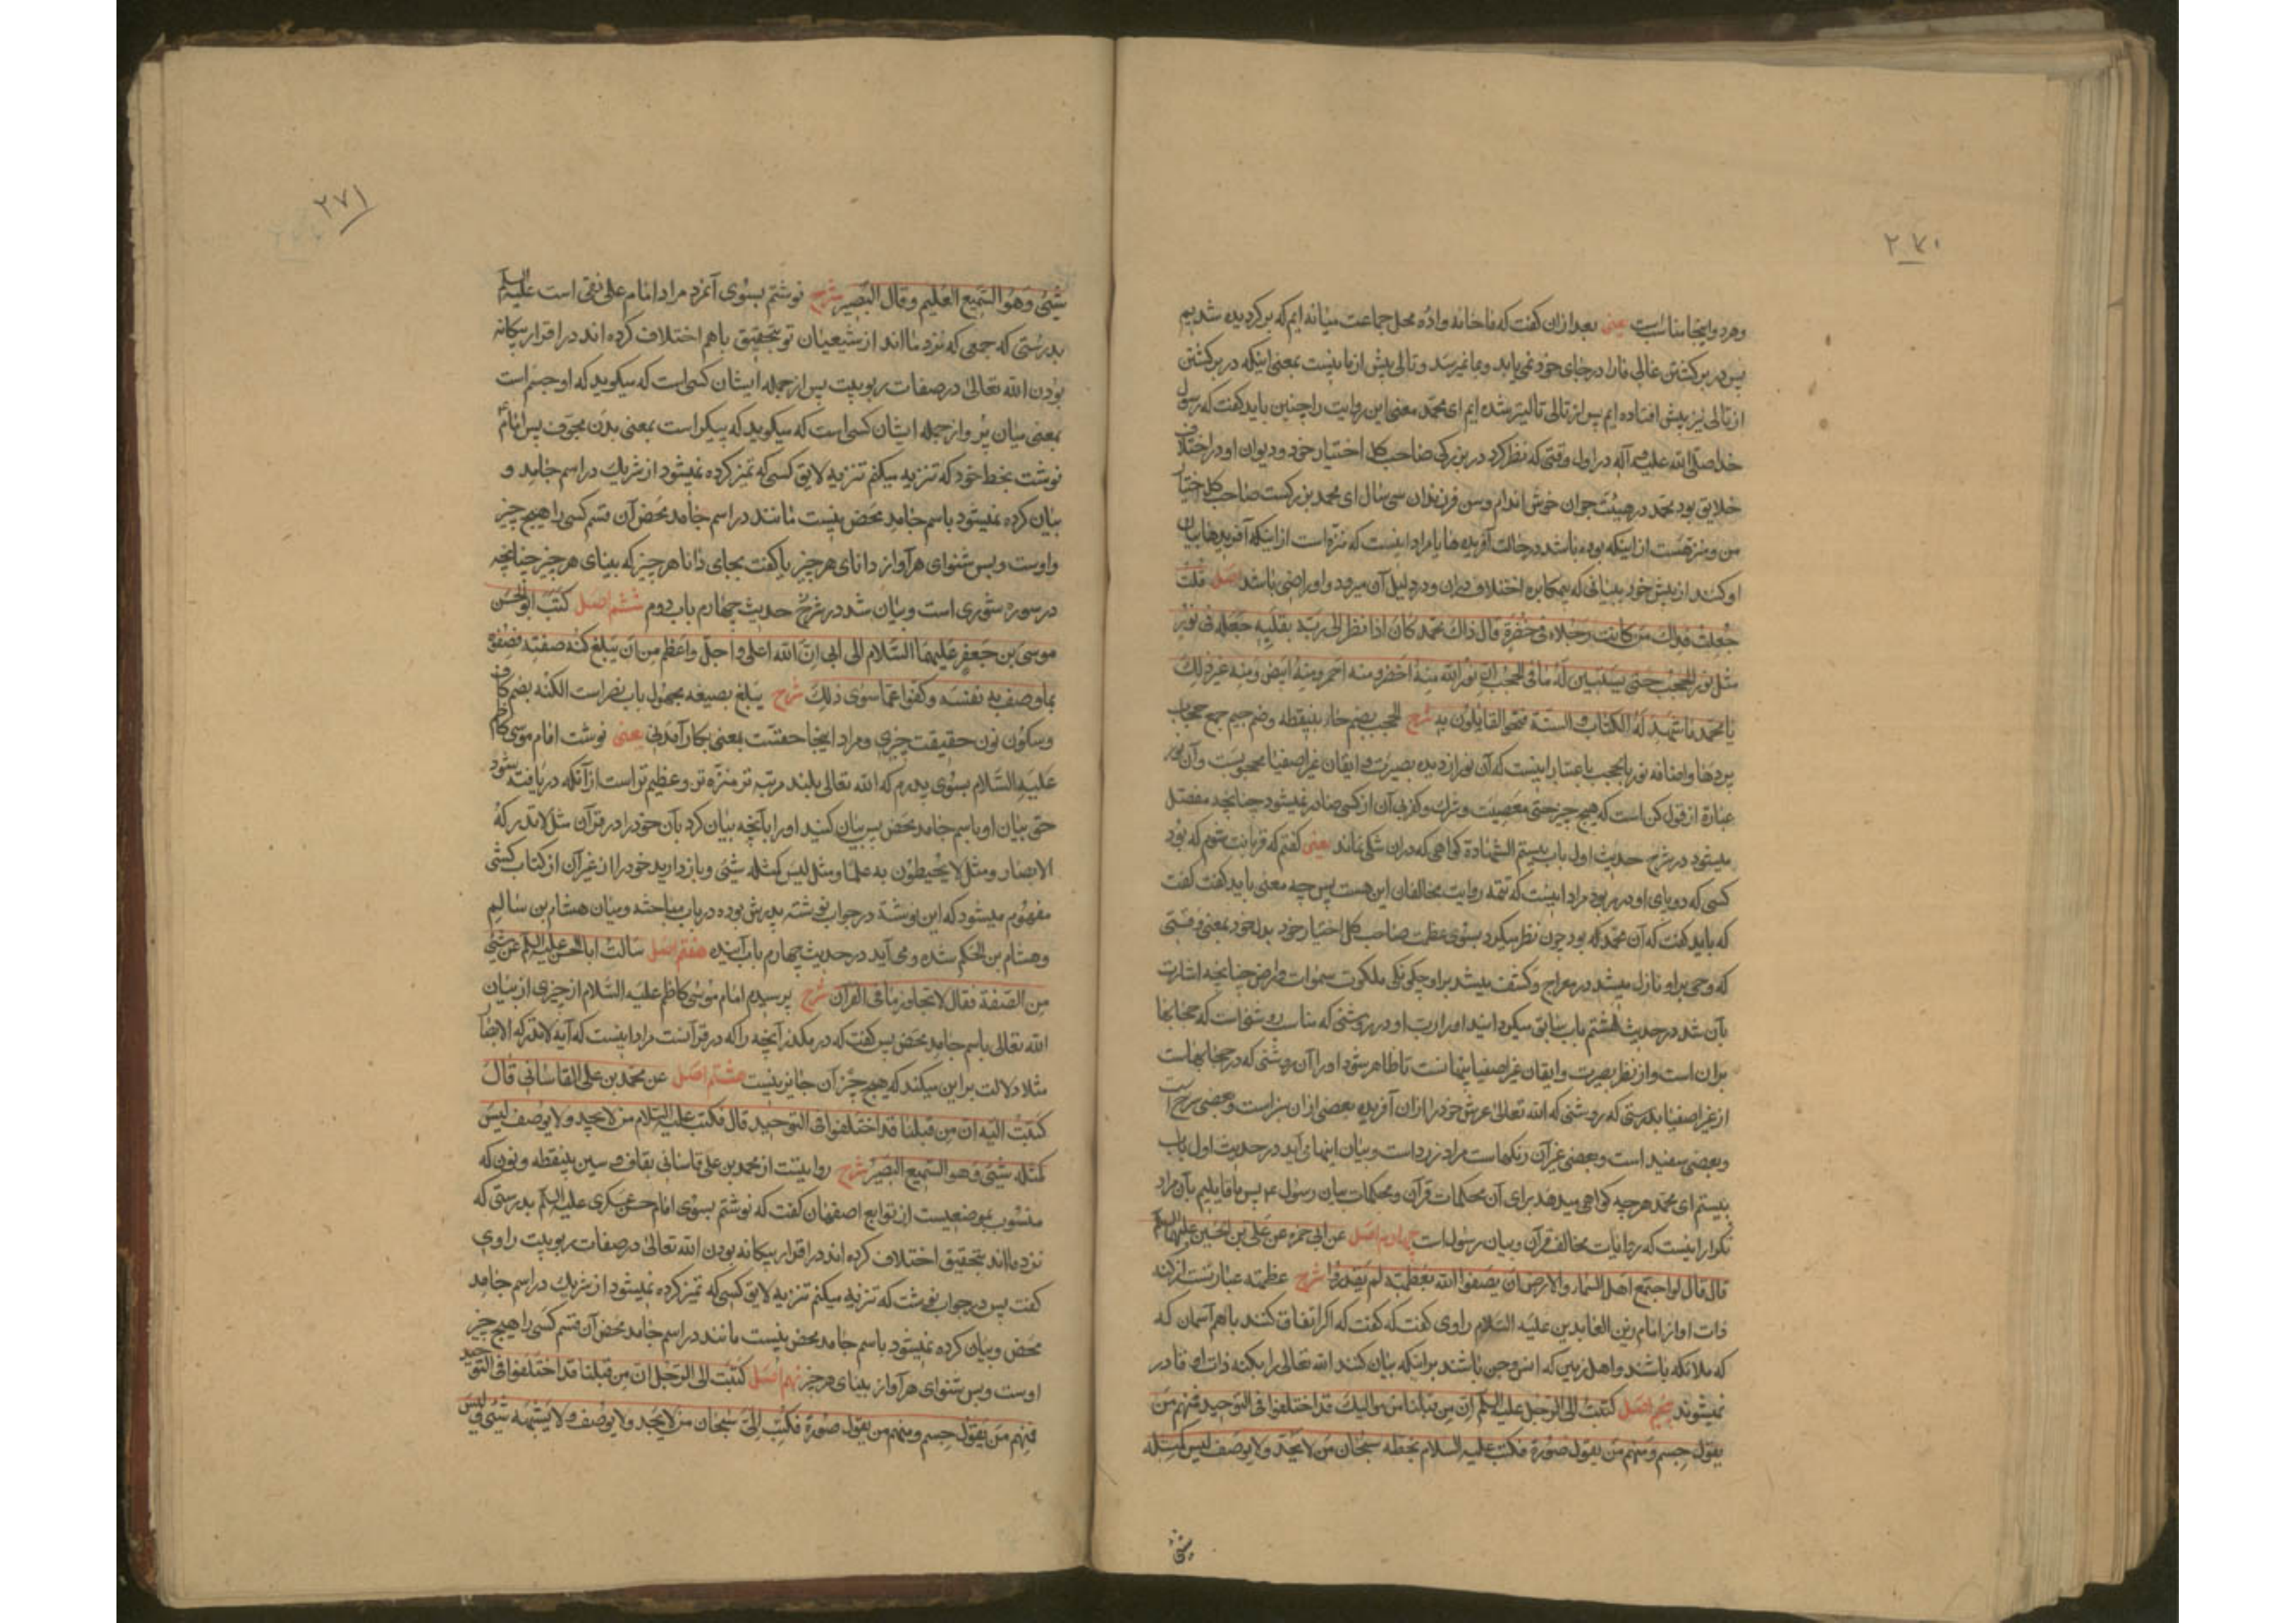 ۲۷۰
وهر دو اینجا مناسبست یعنی بعد از ان کفت که ما خانه واده محل جماعت میانه ایم که بر کردیده شدیم
پس در بر کشتن غالی ما را در جای خود نمی یابد و بما نمیرسد و تالی پیش از ما نیست بمعنی اینکه در بر کشتن
از تالی نیز پیش افتاده ایم پس از تالی تالیتر شده ایم ای محمد معنی این روایت را چنین باید کفت که رسول
خدا صلی الله علیه وآله در اول وقتی که نظر کرد در بزرکی صاحب کل اختیار خود و دیوان او در اختلاف
خلایق بود محمد در هیئت جوان خوش اندام و سن فرزندان سی سال ای محمد بزرکست صاحب کل اختیار
من و منزهست از اینکه بوده باشد در حالت آفریده ها یا مراد اینست که منزه است از اینکه آفریدها بیان
او کنند از پیش خود ببیانی که بمکابره اختلاف در ان و در دلیل آن میرود و او راضی باشد اصل قلت
جعلت فداک من کانت رجلاه فی خضرة قال ذاک محمد کان اذا نظر الی ربه بقلبه جعله فی نور
مثل نور الحجب حتی یستبین له ما فی الحجب ان نور الله منه اخضر و منه احمر ومنه ابیض ومنه غیر ذلک
یا محمد ما شهد له الکتاب والسنة فنحن القایلون به شرح الحجب بضم حاء بینقطه وضم جیم جمع حجاب
پردها و اضافه نور بالحجب باعتبار اینست که آن نور از دیده بصیرت و ایقان غیر اصفیا محجوبست و آن نور
عبارة از قول کن است که هیچ چیز حتی معصیت و ترک و کز بی آن از کسی صادر نمیشود چنانچه مفصل
میشود در شرح حدیث اول باب بیستم الشهادة کواهی که در ان شکی نماند یعنی کفتم که قربانت شوم که بود
کسی که دو پای او در بود مراد اینست که تتمه روایت مخالفان این هست پس چه معنی باید کفت کفت
که باید کفت که آن محمد که بود چون نظر میکرد بسوی عظمت صاحب کل اختیار خود بدل خود بمعنی وقتی
که وحی براو نازل میشد در معراج و کشف میشد براو چکونکی ملکوت سموات وارض چنانچه اشارت
بآن شد در حدیث هشتم باب سابق میکردانید او را رب او در روشنی که مناسب روشنی است که حجابها
بران است و از نظر بصیرت و ایقان غیر اصفیا پنهانست تا ظاهر شود او را آن روشنی که در حجابهاست
از غیر اصفیا بدرستی که روشنی که الله تعالی عرش خود را از ان آفریده بعضی از ان سبز است وبعضی سرخ است
وبعضی سفید است وبعضی غیر آن رنکهاست مراد زرد است وبیان اینها می آید در حدیث اول باب
بیستم ای محمد هر چه کواهی میدهد برای آن محکمات قرآن و محکمات بیان رسول ء پس ما قایلیم بآن مراد
تکرار اینست که روایات مخالف قرآن و بیان رسول است چهارم اصل عن ابی حمزه عن علی بن الحسین علیهما السلام
قال قال لو اجتمع اهل السماء والارض ان یصفوا الله بعظمته لم یقدروا شرح عظمته عبارتست از کنه
ذات او از امام زین العابدین علیه السلام راوی کفت که کفت که اکر اتفاق کنند با هم آسمان که
که ملائکه باشند و اهل زمین که انس وجن باشند برانکه بیان کنند الله تعالی را بکنه ذات او قادر
نمیشوند پنجم اصل کتبت الی الرجل علیه السلم ان من قبلنا من موالیک قد اختلفوا فی التوحید فمنهم من
یقول جسم و منهم من یقول صورة فکتب علیه السلام بخطه سبحان من لا یحد ولا یوصف لیس کمثله
شیئ
۲۷۱
شیئ وهو السمیع العلیم وقال البصیر شرح نوشتم بسوی آنمرد مراد امام علی نقی است علیه السلم
بدرستی که جمعی که نزد ما اند از شیعیان تو بتحقیق باهم اختلاف کرده اند در اقرار بیکانه
بودن الله تعالی در صفات ربوبیت پس از جمله ایشان کسی است که میکوید که او جسم است
بمعنی میان پر و از جمله ایشان کسی است که میکوید که پیکر است بمعنی بدن مجوف پس امام ع
نوشت بخط خود که تنزیه میکنم تنزیه لایق کسی که تمیز کرده نمیشود از شریک در اسم جامد و
بیان کرده نمیشود باسم جامد محض نیست مانند در اسم جامد محض آن قسم کسی را هیچ چیز
و اوست و بس شنوای هر آواز دانای هر چیز یا کفت بجای دانا هر چیز که بینای هر چیز چنانچه
در سوره شوری است و بیان شد در شرح حدیث چهارم باب دوم ششم اصل کتب ابو الحسن
موسی بن جعفر علیهما السلام الی ابی ان الله اعلی واجل واعظم من ان یبلغ کنه صفته فصفوه
بما وصف به نفسه وکفوا عما سوی ذلک شرح یبلغ بصیغه مجهول باب نصر است الکنه بضم کاف
وسکون نون حقیقت چیزی و مراد اینجا حقتست بمعنی بکار آمدنی یعنی نوشت امام موسی کاظم
علیه السلام بسوی پدرم که الله تعالی بلند مرتبه تر منزه تر و عظیم تر است از آنکه دریافته شود
حق بیان او باسم جامد محض پس بیان کنید او را بآنچه بیان کرد بآن خود را در قرآن مثل لا تدرکه
الابصار ومثل لا یحیطون به علما ومثل لیس کمثله شیئ و باز دارید خود را از غیر آن از کتاب کشی
مفهوم میشود که این نوشته در جواب نوشته پدرش بوده در باب مباحثه ومیان هشام بن سالم
وهشام بن الحکم شده و می آید در حدیث چهارم باب آینده هفتم اصل سالت ابا الحسن علیه السلم عن شیئ
من الصفة فقال لا تجاوز ما فی القرآن شرح پرسیدم امام موسی کاظم علیه السلام از چیزی از بیان
الله تعالی باسم جامد محض پس کفت که در مکذر آنچه را که در قرآنست مراد اینست که آیه لا تدرکه الابصار
مثلا دلالت بر این میکند که هیچ چیز آن جایز نیست هشتم اصل عن محمد بن علی القاسانی قال
کتبت الیه ان من قبلنا قد اختلفوا فی التوحید قال فکتب علیه السلام من لا یحد ولا یوصف لیس
کمثله شیئ وهو السمیع البصیر شرح روایتست از محمد بن علی قاسانی بقاف و سین بینقطه ونون که
منسوب بموضعیست از توابع اصفهان کفت که نوشتم بسوی امام حسن عسکری علیه السلم بدرستی که
نزد ما اند بتحقیق اختلاف کرده اند در اقرار بیکانه بودن الله تعالی در صفات ربوبیت راوی
کفت پس در جواب نوشت که تنزیه میکنم تنزیه لایق کسی که تمیز کرده نمیشود از شریک در اسم جامد
محض وبیان کرده نمیشود باسم جامد محض نیست مانند در اسم جامد محض آن قسم کسی را هیچ چیز
اوست و بس شنوای هر آواز بینای هر چیز نهم اصل کتبت الی الرجل ان من قبلنا قد اختلفوا فی التوحید
فمنهم من یقول جسم ومنهم من یقول صورة فکتب الی سبحان من لا یحد ولا یوصف ولا یشبهه شیئ ولیس